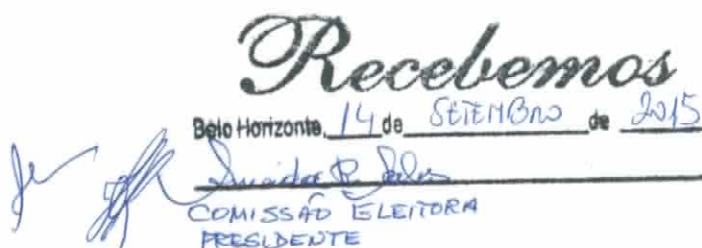 Recebemos
Belo Horizonte, 14 de SETEMBRO de 2015
COMISSÃO ELEITORA
PRESIDENTE